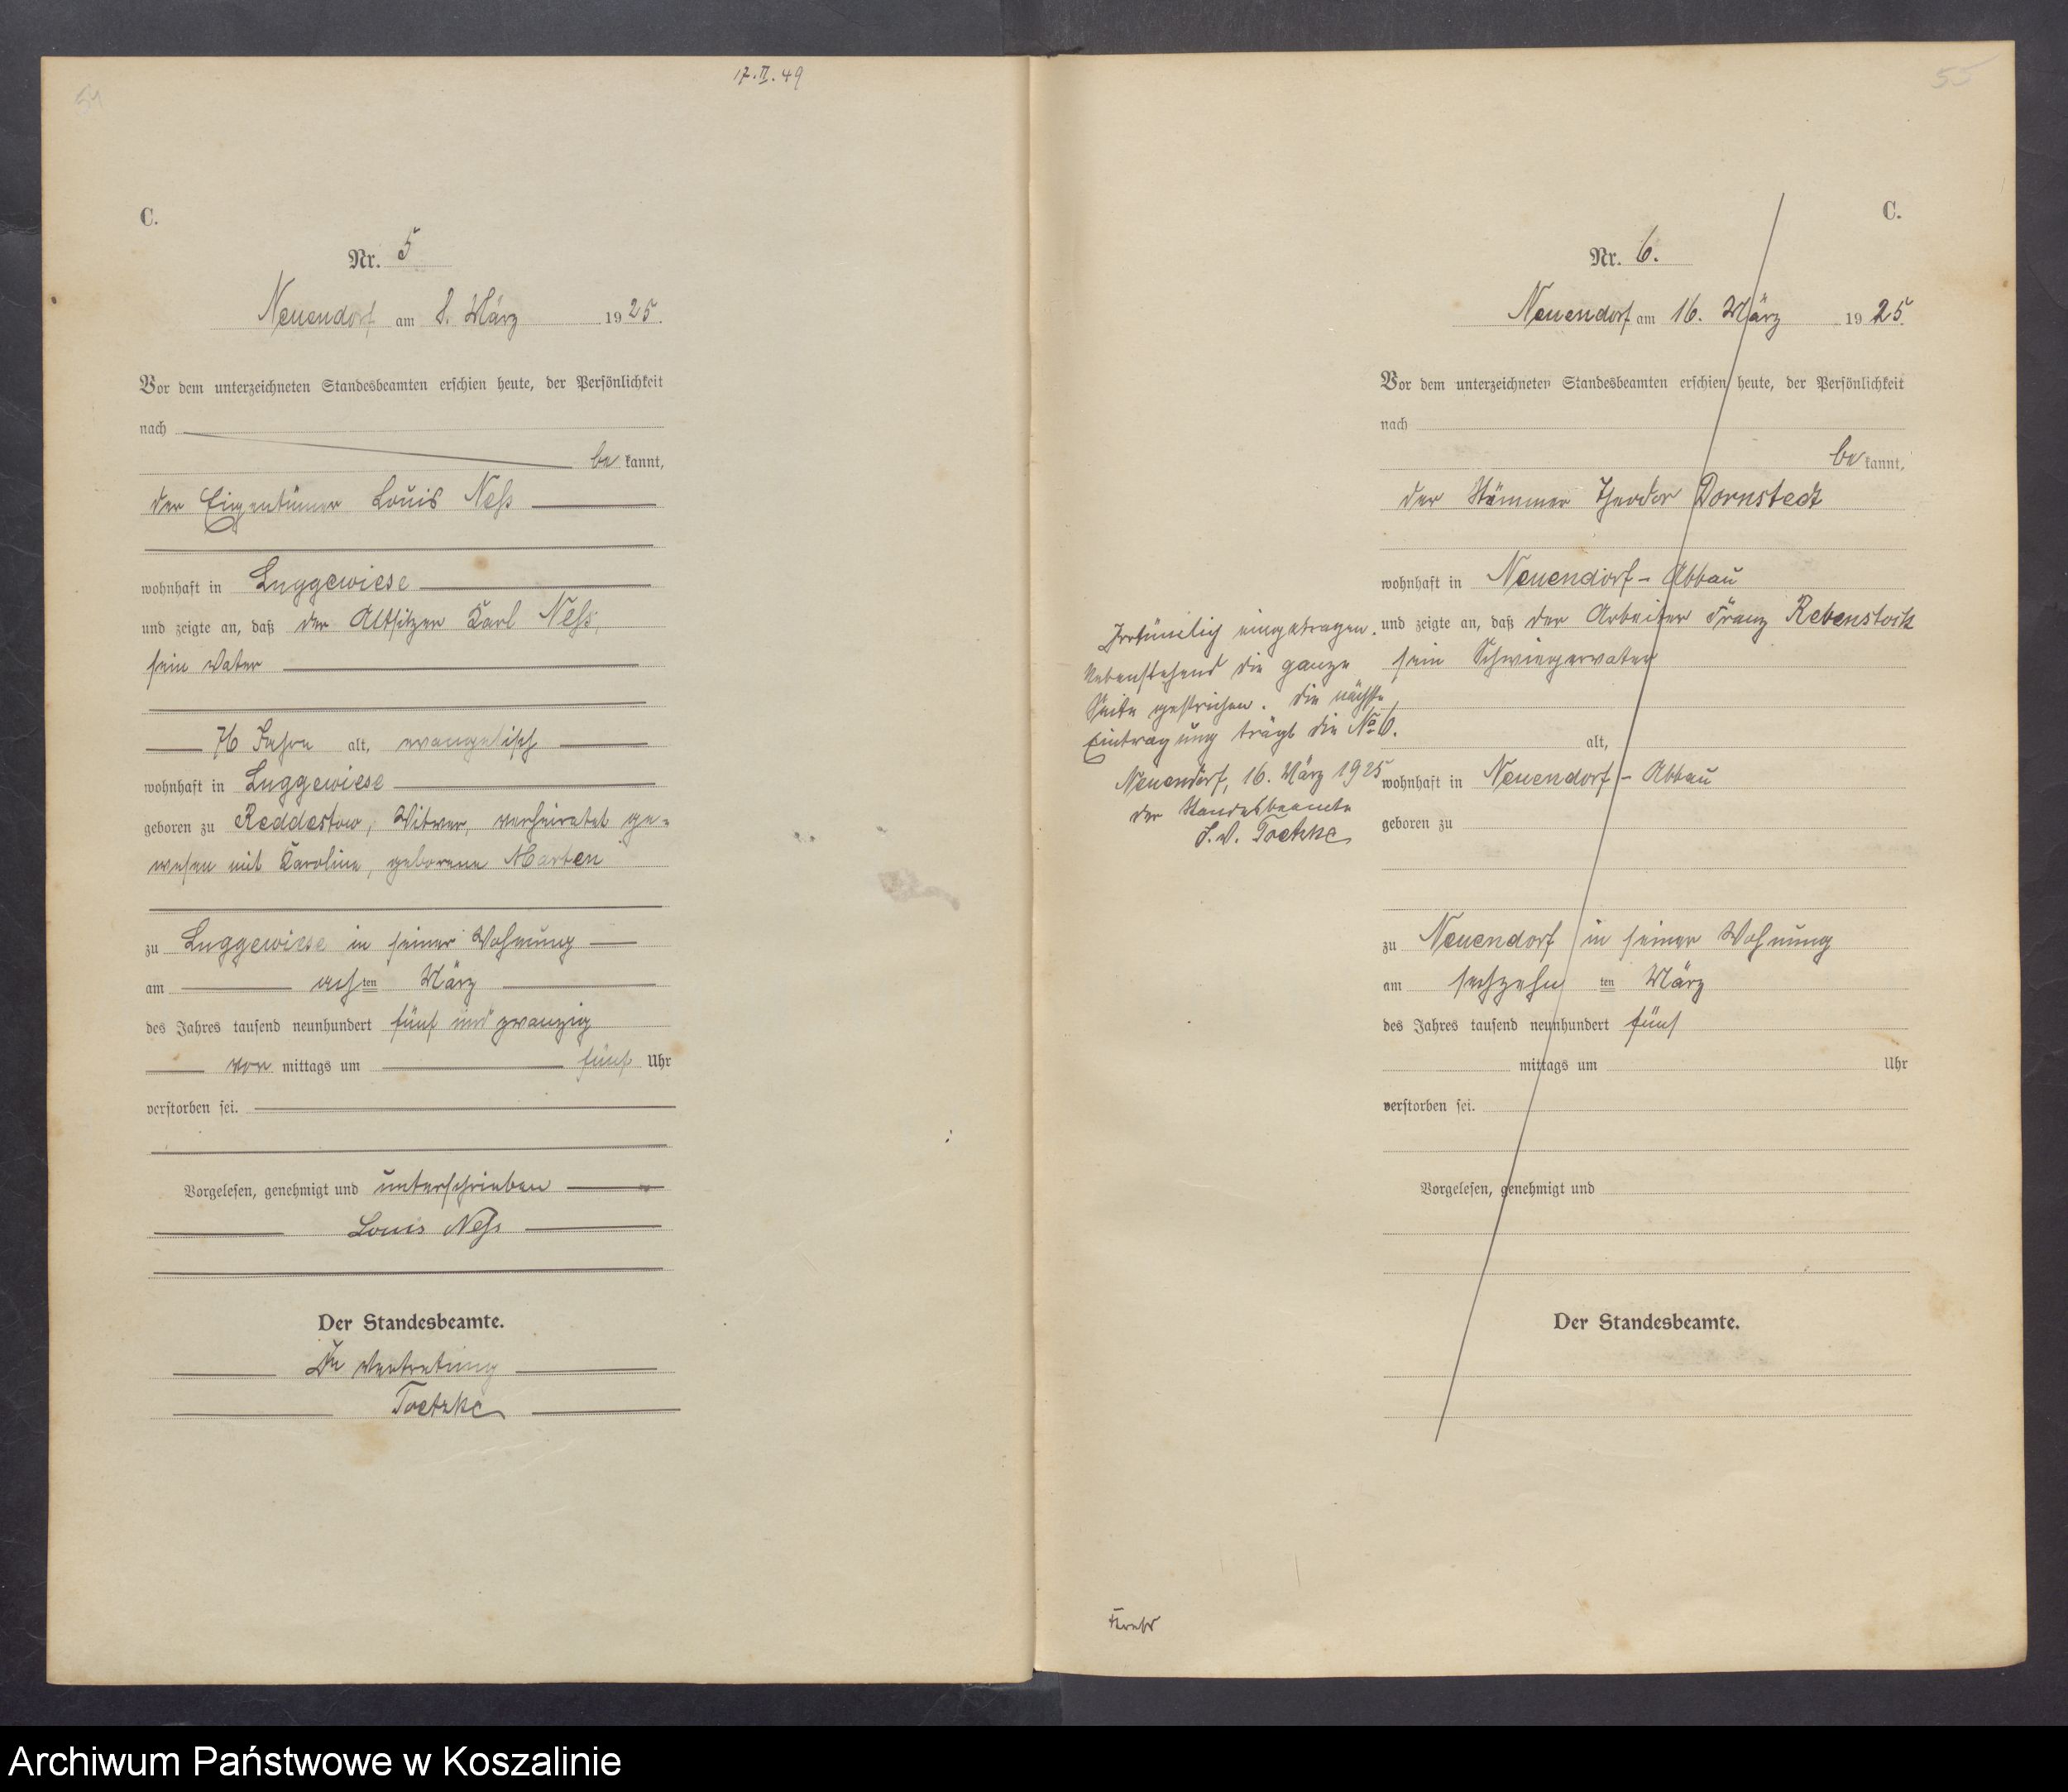 54
17.II.49
C.
Nr. 5
Neuendorf am 8. März 1925.
Vor dem unterzeichneten Standesbeamten erschien heute, der Persönlichkeit
nach
be kannt,
der Eigentümer Louis Neß
wohnhaft in Luggewiese
und zeigte an, daß der Altsitzer Karl Neß,
sein Vater
76 Jahre alt, evangelisch
wohnhaft in Luggewiese
geboren zu Reddestow, Witwer, verheiratet ge-
wesen mit Karoline, geborene Marten
zu Luggewiese in seiner Wohnung
am achten März
des Jahres tausend neunhundert fünf und zwanzig
vor mittags um fünf Uhr
verstorben sei.
Vorgelesen, genehmigt und unterschrieben
Louis Neß
Der Standesbeamte.
In Vertretung
Toetzke
55
C.
Nr. 6.
Neuendorf am 16. März 1925.
Vor dem unterzeichneten Standesbeamten erschien heute, der Persönlichkeit
nach
be kannt,
der Theodor Dornstedt
wohnhaft in Neuendorf - Abbau
und zeigte an, daß der Arbeiter Franz Rebenstock
sein Schwiegervater
alt,
wohnhaft in Neuendorf - Abbau
geboren zu
zu Neuendorf in seiner Wohnung
am sechzehn ten März
des Jahres tausend neunhundert fünf
mittags um Uhr
verstorben sei.
Vorgelesen, genehmigt und
Der Standesbeamte.
Irrtümlich eingetragen.
Nebenstehend die ganze
Seite gestrichen. Die nächste
Eintragung trägt die No 6.
Neuendorf, 16. März 1925
der Standesbeamte
J.V. Toetzke
Archiwum Państwowe w Koszalinie